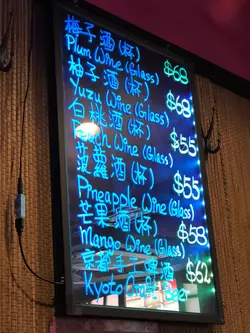 梅子酒(杯)
Plum Wine (Glass) $68
柚子酒(杯)
Yuzu Wine (Glass) $68
白桃酒(杯)
Peach Wine (Glass) $55
菠蘿酒(杯)
Pineapple Wine (Glass) $55
芒果酒(杯)
Mango Wine (Glass) $58
京都手工啤酒 $62
Kyoto Craft Beer